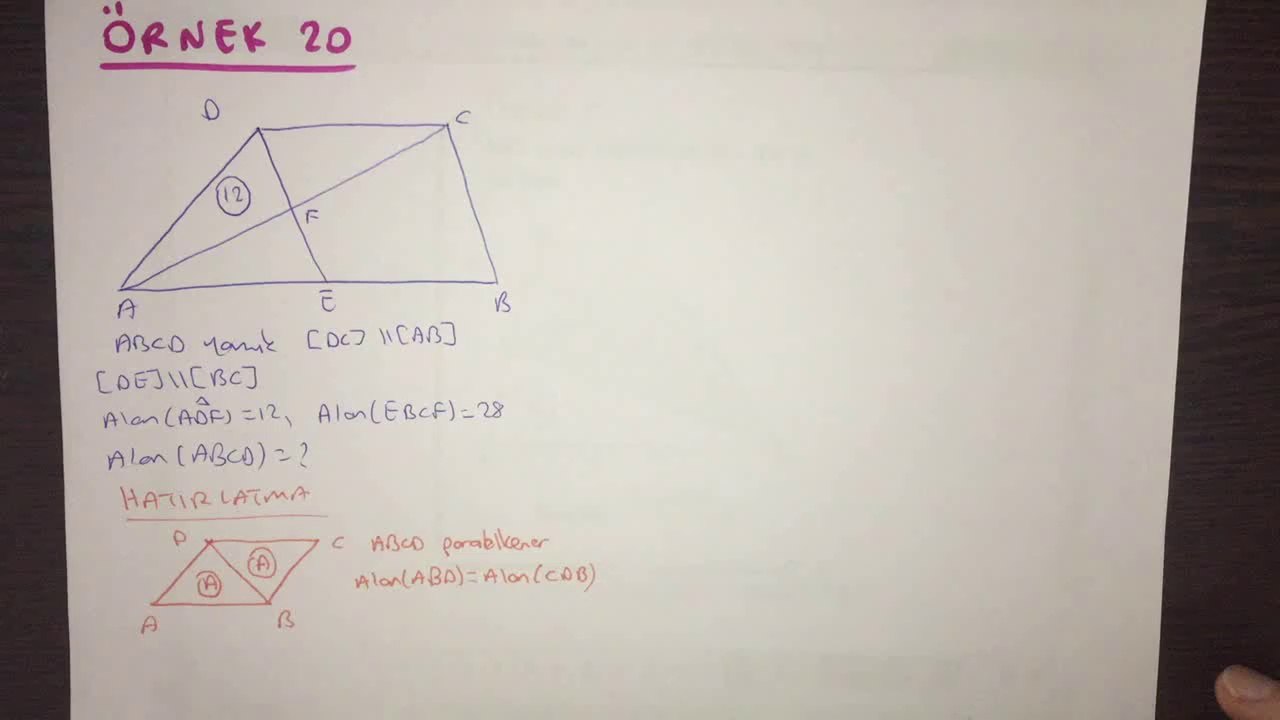 ÖRNEK 20
D
C
12
F
A
E
B
ABCD yamuk [DC] // [AB]
[DE] // [BC]
Alan(ADF) = 12, Alan(EBCF) = 28
Alan(ABCD) = ?
HATIRLATMA
D
C
ABCD paralelkenar
A
A
Alan(ABD) = Alan(CDB)
A
B